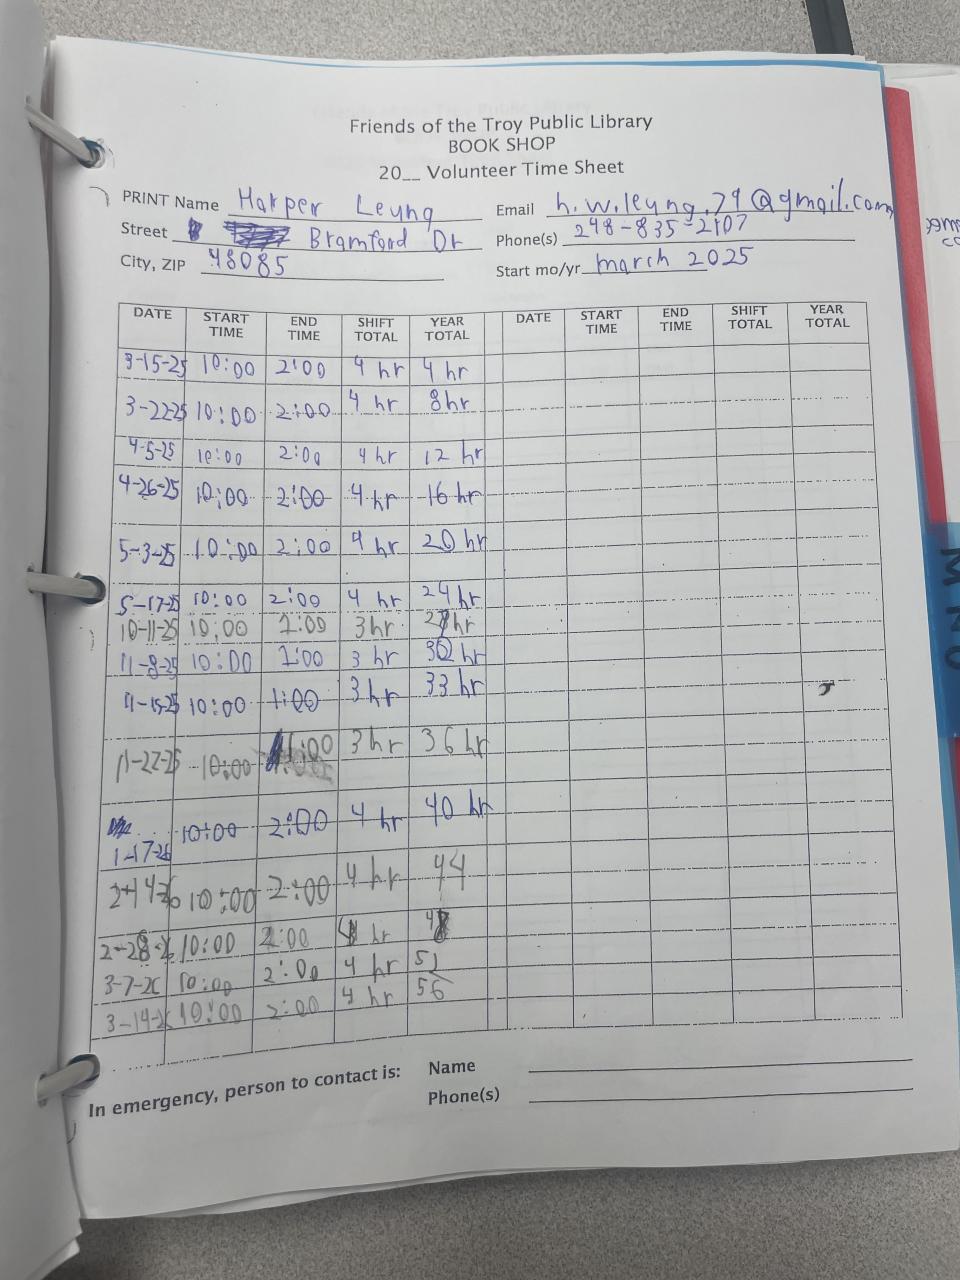 Friends of the Troy Public Library
BOOK SHOP
20__ Volunteer Time Sheet
PRINT Name Harper Leung
Email h.w.leung.79@gmail.com
Street Bramford Dr
Phone(s) 248-835-2107
City, ZIP 48085
Start mo/yr. march 2025
DATE START TIME END TIME SHIFT TOTAL YEAR TOTAL DATE START TIME END TIME SHIFT TOTAL YEAR TOTAL
3-15-25 10:00 2:00 4 hr 4 hr
3-22-25 10:00 2:00 4 hr 8hr
4-5-25 10:00 2:00 4hr 12 hr
4-26-25 10:00 2:00 4 hr 16 hr
5-3-25 10:00 2:00 4 hr 20 hr
5-17-25 10:00 2:00 4 hr 24 hr
10-11-25 10:00 1:00 3hr hr
11-8-25 10:00 1:00 3 hr 30 hr
11-15-25 10:00 1:00 3hr 33 hr
11-22-25 10:00 1:00 3hr 36 hr
1-17-26 10:00 2:00 4 hr 40 hr
2-14-26 10:00 2:00 4 hr 44
2-28-26 10:00 2:00 4 hr 48
3-7-26 10:00 2:00 4 hr
3-14-26 10:00 2:00 4 hr 56
In emergency, person to contact is: Name
Phone(s)